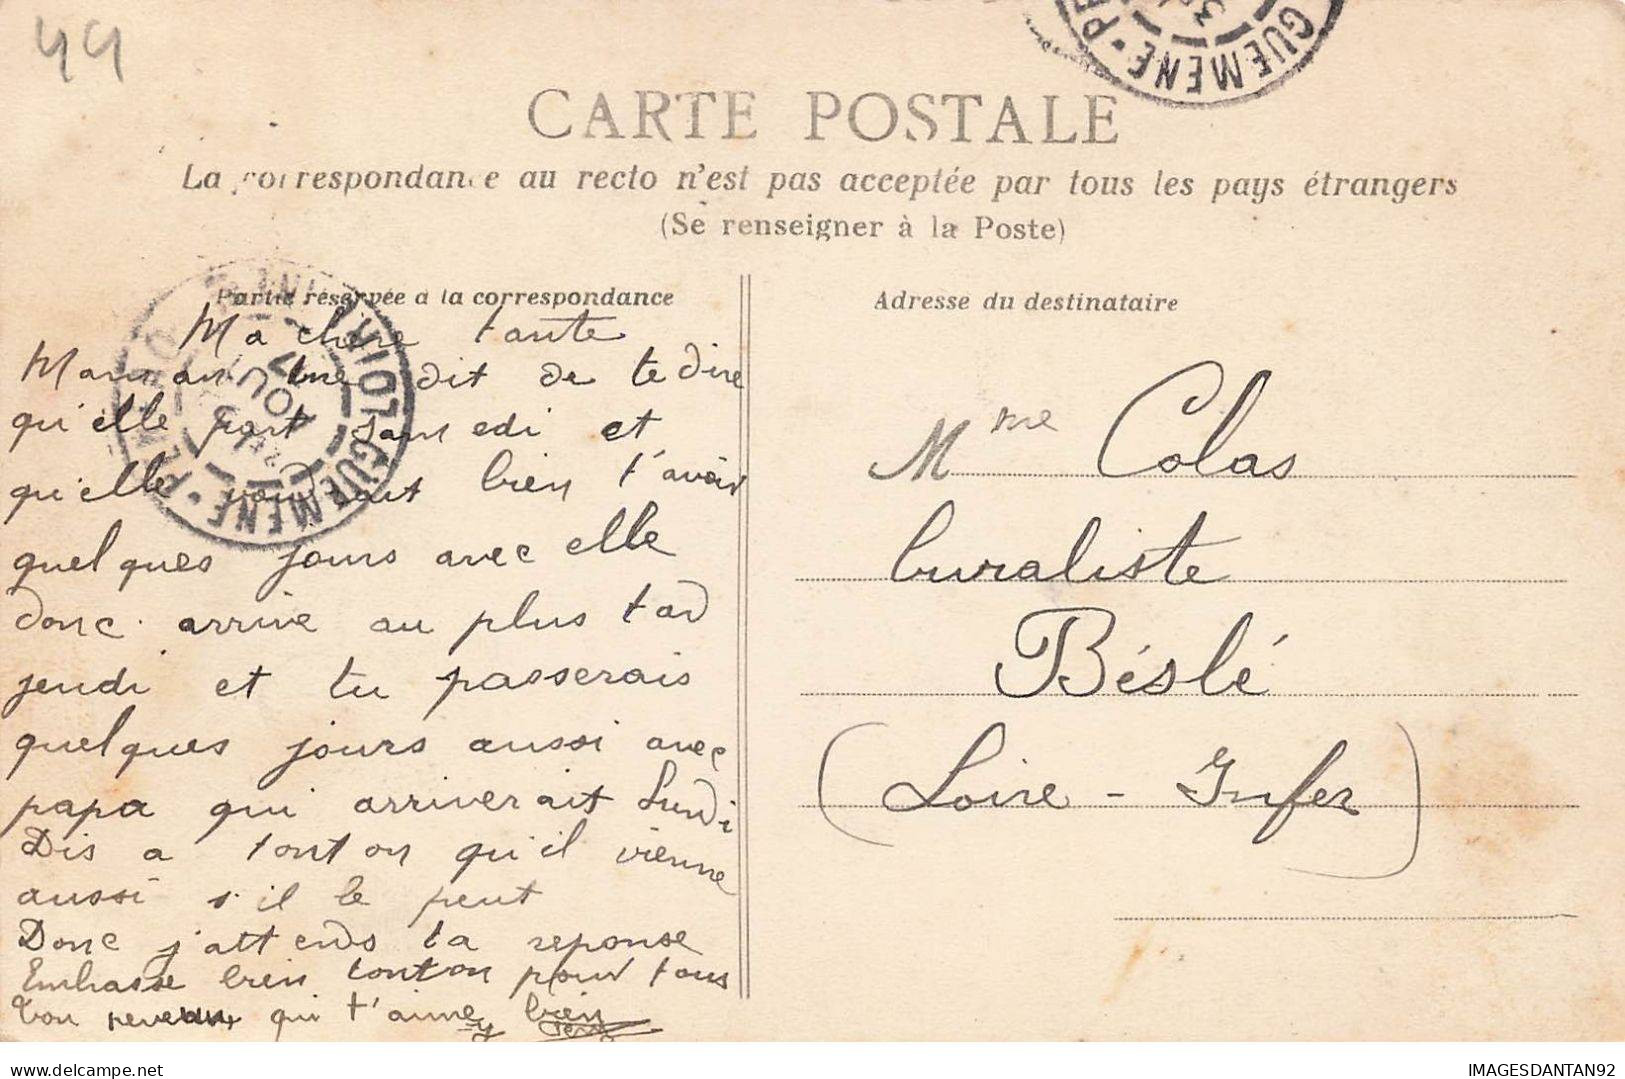 44
CARTE POSTALE
La correspondance au recto n'est pas acceptée par tous les pays étrangers
(Se renseigner à la Poste)
GUEMENE · PE
Partie réservée à la correspondance
Adresse du destinataire
GUEMENE · PENFAO LOIRE INF
Ma chère tante
Maman me dit de te dire
qu'elle part samedi et
qu'elle voudrait bien t'avoir
quelques jours avec elle
donc arrive au plus tard
jeudi et tu passerais
quelques jours aussi avec
papa qui arriverait Lundi
Dis a tonton qu'il vienne
aussi s'il le peut
Donc j'attends ta reponse
Embrasse bien tonton pour tous
Ton neveux qui t'aime bien
Mme Colas
buraliste
Béslé
(Loire - Infer)
delcampe.net
IMAGESDANTAN92